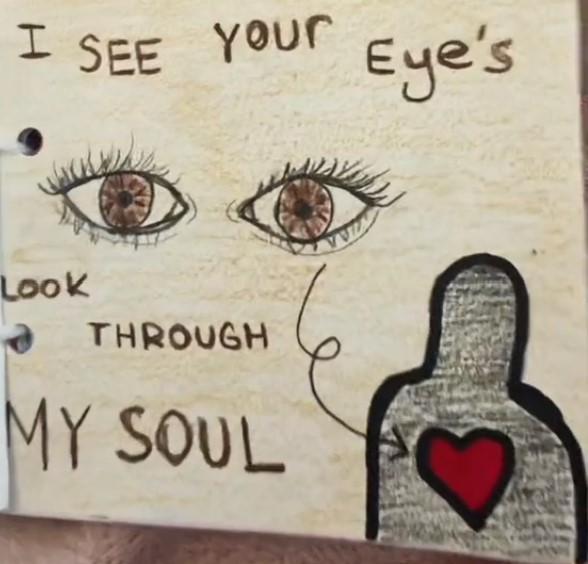 I SEE YOUr Eye's
LOOK
THROUGH
MY SOUL